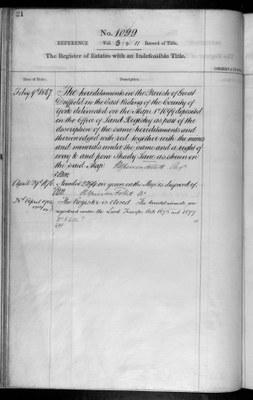 21
No. 1099
REFERENCE Vol. 3 p. 11 Record of Title.
The Register of Estates with an Indefeasible Title.
Date of Entry.
Description.
Feby 9th 1867
The hereditaments in the Parish of Great
Driffield in the East Riding of the County of
York delineated on the Map No 1099 deposited
in the Office of Land Registry as part of the
description of the same hereditaments and
therein edged with red together with the mines
and minerals under the same and a right of
way to and from Shady Lane as shown on
the said Map
April 29th 1876
Numbered 2294 on green on the Map is disposed of
28th April 1902
The Register is closed. The hereditaments are
registered under the Land Transfer Acts 1875 and 1897